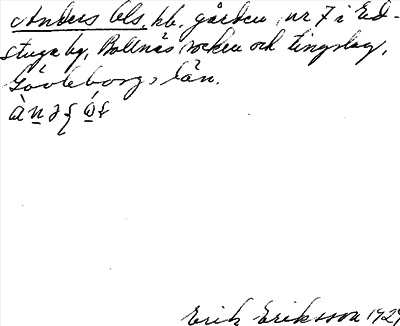 Anders Ols, hb. gården, nr 7 i Ed-
stuga by, Bollnäs socken och tingslag,
Gävleborgs län.
Erik Eriksson 1929